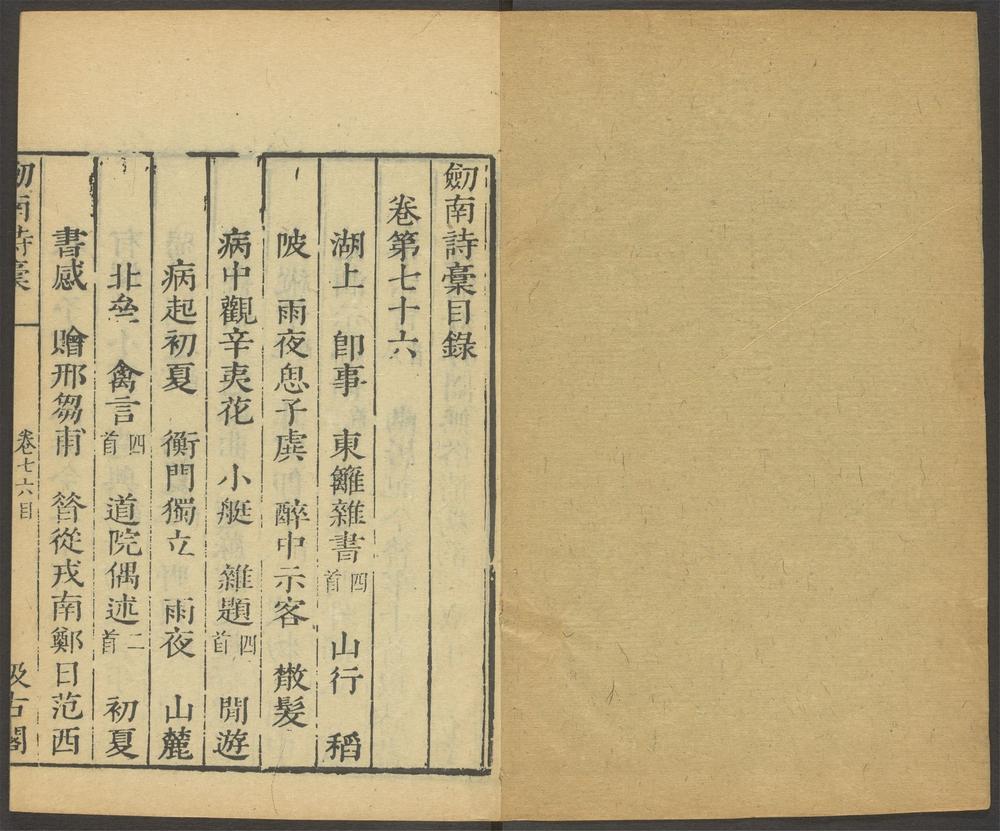 劒南詩稾目錄
卷第七十六
湖上　卽事　東籬雜書四首　山行　稻
陂　雨夜思子虡　醉中示客　散髮
病中觀辛夷花　小艇　雜題四首　閒遊
病起初夏　衡門獨立　雨夜　山麓
北壘　禽言四首　道院偶述二首　初夏
書感　贈邢芻甫　昝從戎南鄭日范西
劒南詩稾　卷七六目　汲古閣